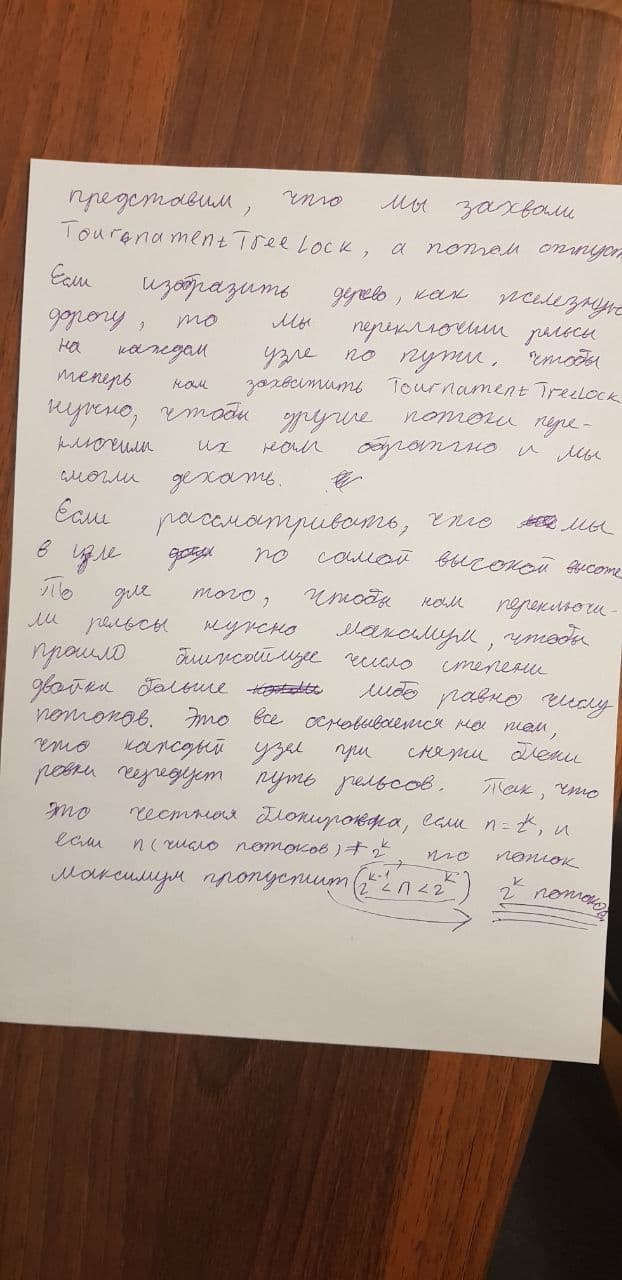 представим, что мы захвали
Tournament Tree Lock, а потом отпуст
Если изобразить дерево, как железную
дорогу, то мы переключим рельсы
на каждом узле по пути. чтобы
теперь нам захватить Tournament TreeLock
нужно, чтобы другие потоки пере-
ключили их нам обратно и мы
смогли дехать.
Если рассматривать, что мы
в узле по самой высокой высоте
То для того, чтобы нам переключи-
ли рельсы нужно максимум, чтобы
прошло ближайщее число степени
двойки больше либо равно числу
потоков. Это все основывается на том,
что каждый узел при снятии блоки
ровки чередует путь рельсов. Так, что
это честная блокировка, если n = 2^k, и
если n (число потоков) ≠ 2^k, то поток
максимум пропустит (2^{k-1} < n < 2^k) 2^k потоков